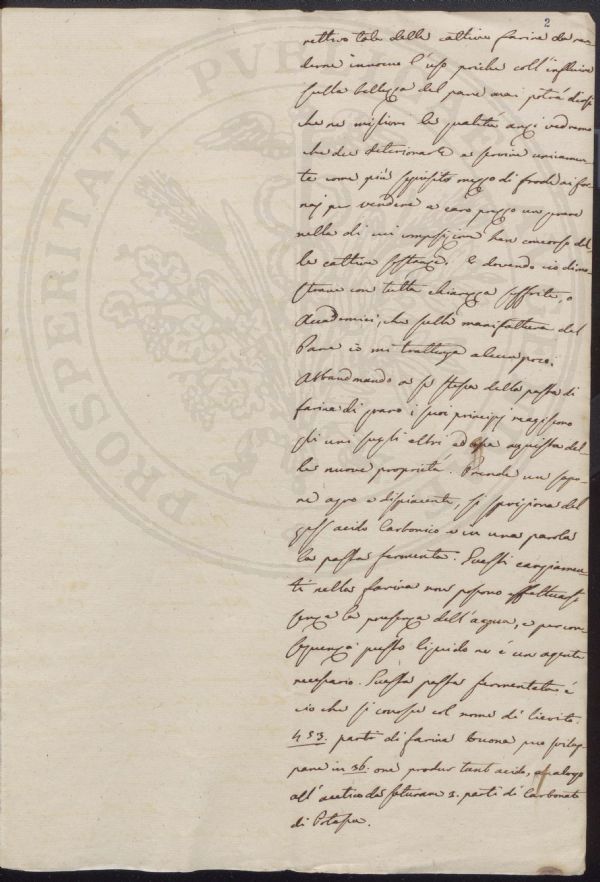 2
rettivo tale della cattiva farina da ren-
derne innocuo l'uso poiche coll'influire
sulla bellezza del pane mai potrà dirsi
che ne migliori le qualità anzi vedremo
che dee deteriorarle e servire unicamen-
te come più squisito mezzo di frode ai for-
naj per vendere a caro prezzo un pane
nella di cui composizione han concorso del-
le cattive sostanze. E dovendo ciò dimo-
strare con tutta chiarezza soffrite, o
Accademici, che sulla manifattura del
Pane io mi trattenga alcun poco.
Abbandonando a se stessa della pasta di
farina di grano i suoi principj reagiscono
gli uni sugli altri ed essa acquista del-
le nuove proprietà. Prende un sapo-
re agro e dispiacente, si sprigiona del
gass acido Carbonico e in una parola
la pasta fermenta. Questi cangiamen-
ti nella farina non possono effettuarsi
senza la presenza dell'acqua, e per con-
seguenza questo liquido ne é un agente
necessario. Questa pasta fermentata é
ciò che si conosce col nome di lievito.
453. parti di farina buona può svilup-
pare in 36. ore produr tant'acido, analogo
all'acetico da saturare 3. parti di Carbonato
di Potassa.
PROSPERITATI PUBLICAE